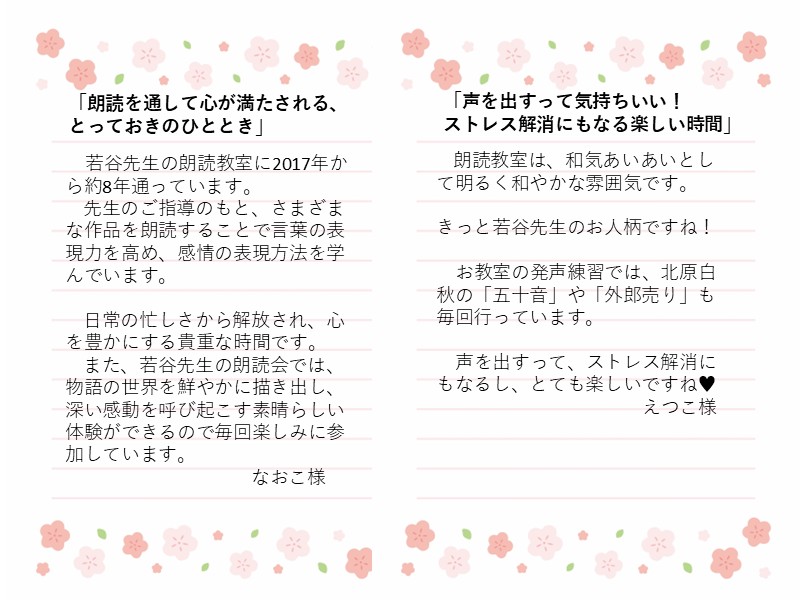 「朗読を通して心が満たされる、
とっておきのひととき」
若谷先生の朗読教室に2017年か
ら約8年通っています。
先生のご指導のもと、さまざま
な作品を朗読することで言葉の表
現力を高め、感情の表現方法を学
んでいます。
日常の忙しさから解放され、心
を豊かにする貴重な時間です。
また、若谷先生の朗読会では、
物語の世界を鮮やかに描き出し、
深い感動を呼び起こす素晴らしい
体験ができるので毎回楽しみに参
加しています。
なおこ様
「声を出すって気持ちいい！
ストレス解消にもなる楽しい時間」
朗読教室は、和気あいあいとし
て明るく和やかな雰囲気です。
きっと若谷先生のお人柄ですね！
お教室の発声練習では、北原白
秋の「五十音」や「外郎売り」も
毎回行っています。
声を出すって、ストレス解消に
もなるし、とても楽しいですね♥
えつこ様